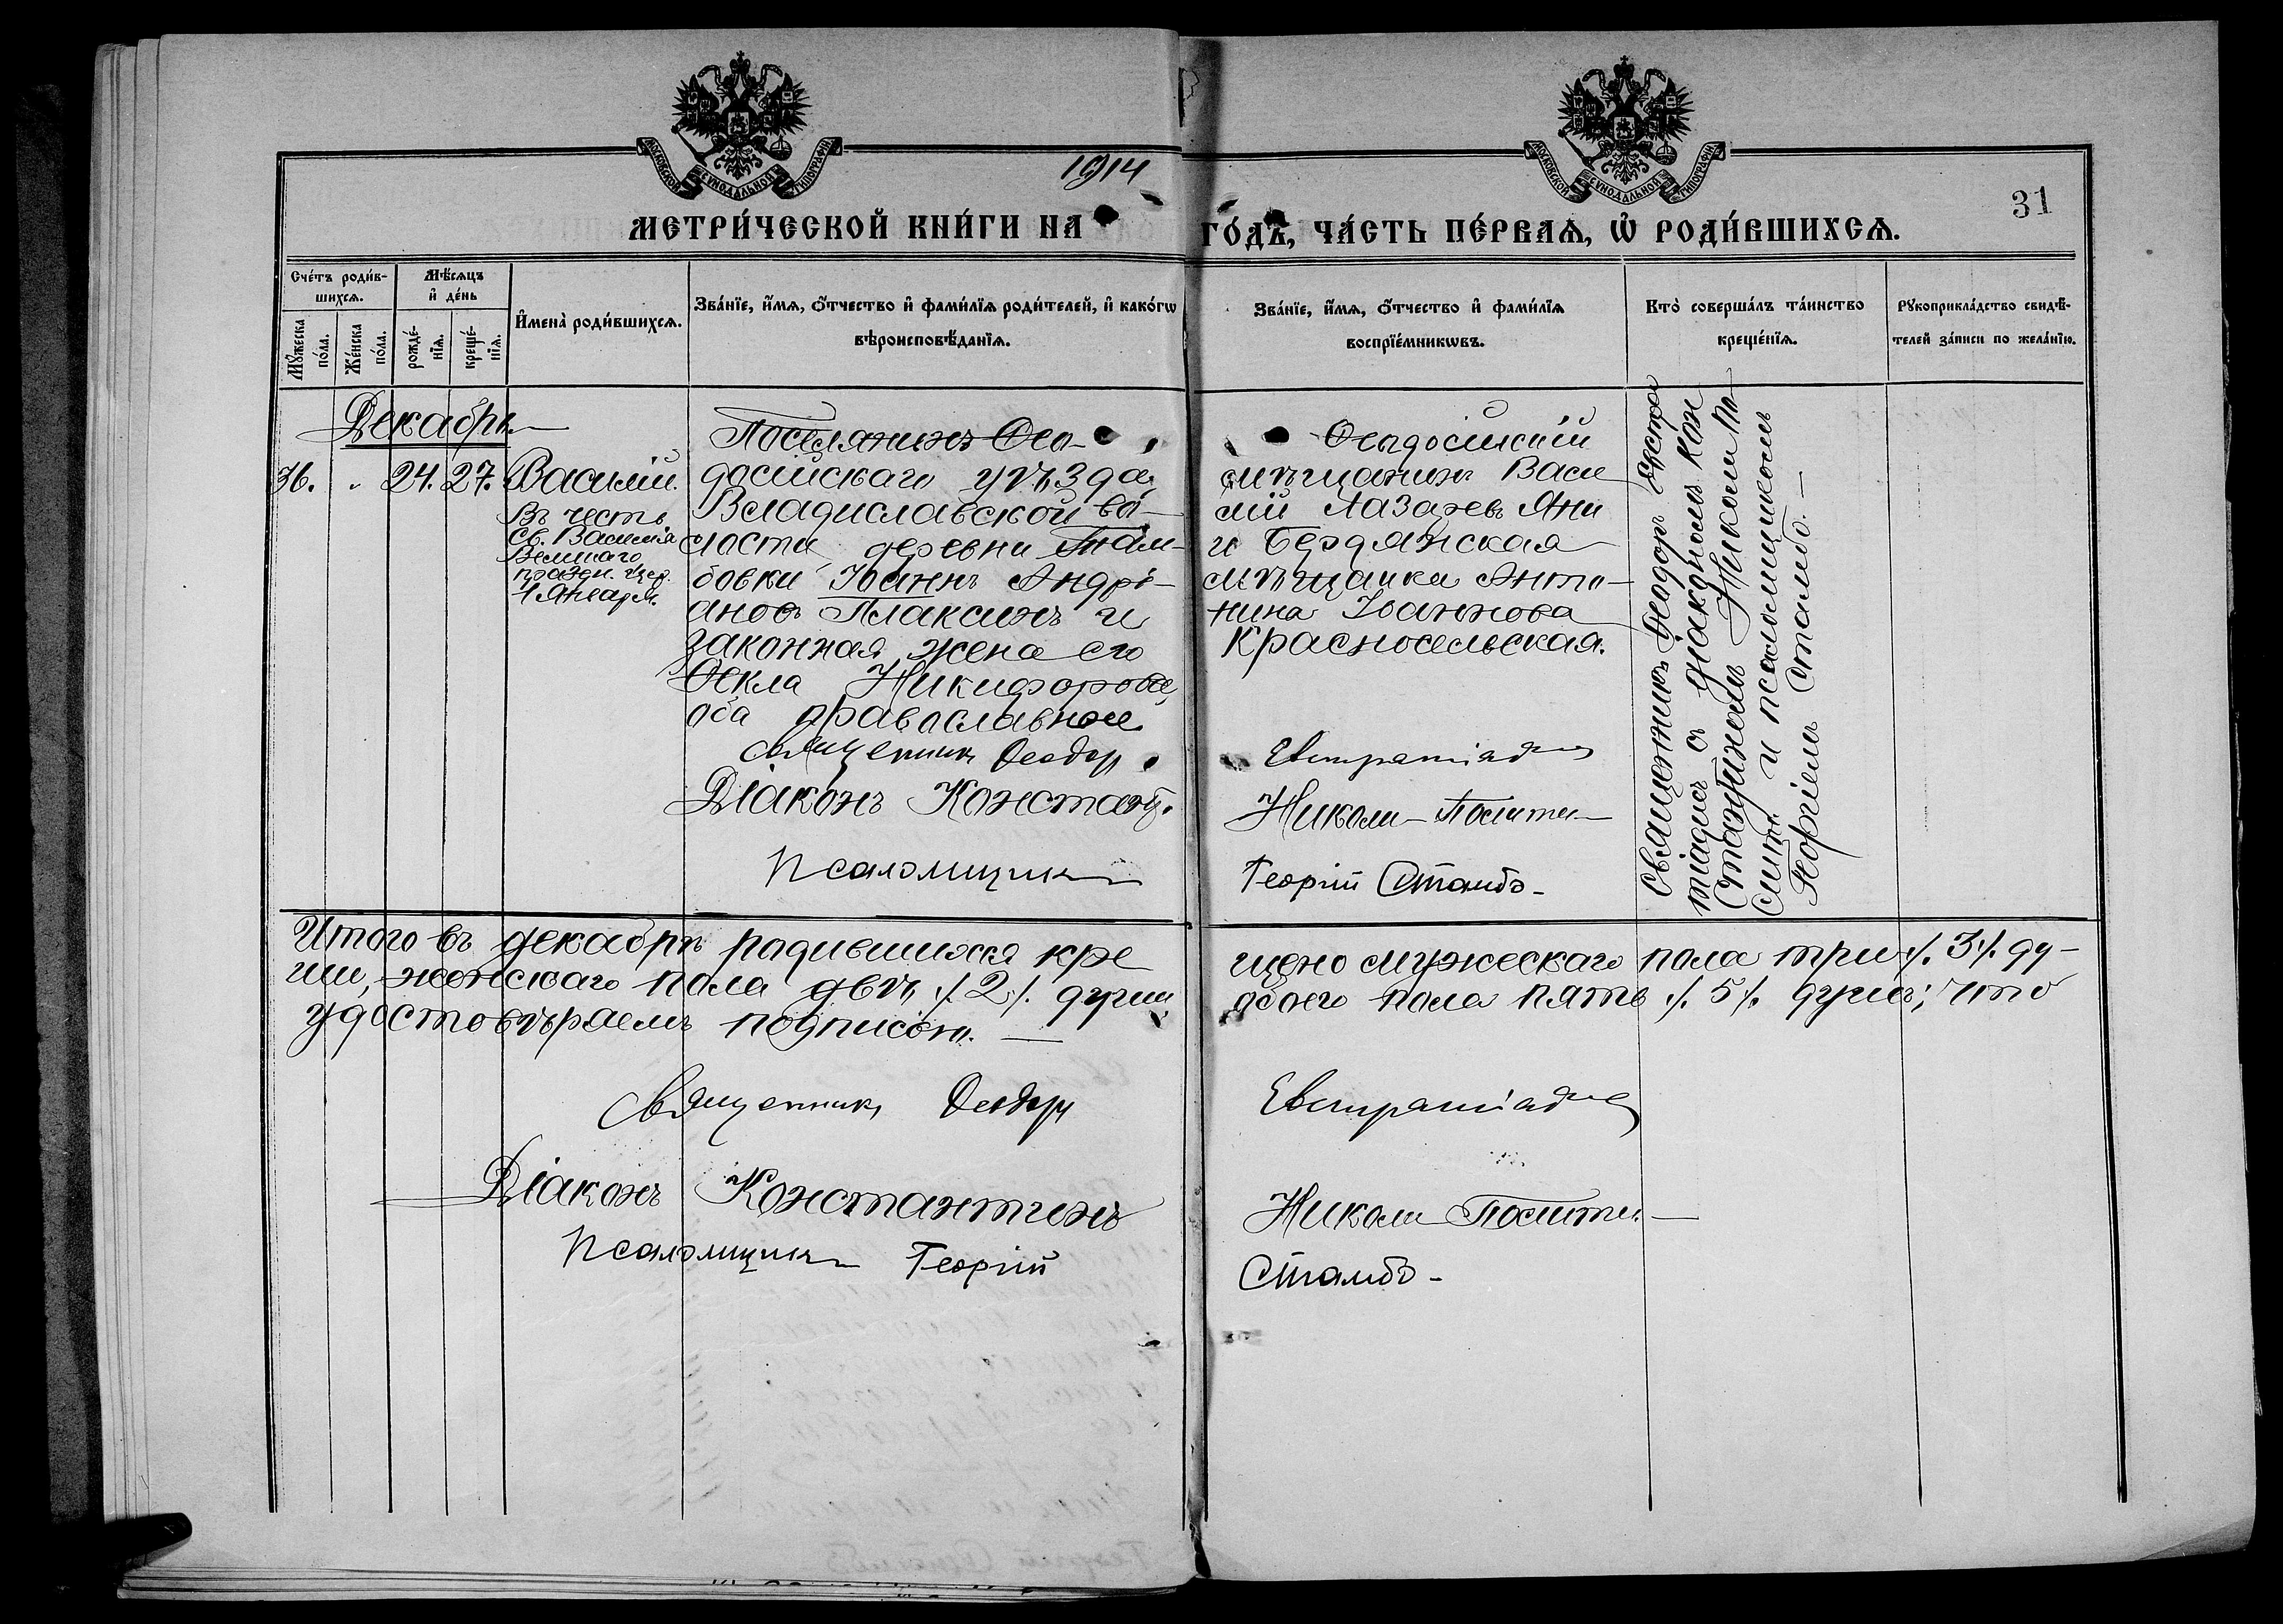 МОСКОВСКОЙ СѴНОДАЛЬНОЙ ТИПОГРАФІИ
МОСКОВСКОЙ СѴНОДАЛЬНОЙ ТИПОГРАФІИ
1914
31
МЕТРИ́ЧЕСКОЙ КНИ́ГИ НА
ГО́ДЪ, ЧА́СТЬ ПЕ́РВАѦ, Ѽ РОДИ́ВШИХСѦ.
Сче́тъ роди́в-
шихсѧ.
Мꙋ́жеска
по́ла.
Же́нска
по́ла.
Мѣ́сѧцъ
и҆ де́нь
рожде́-
нїѧ.
креще́-
нїѧ.
И҆мена̀ роди́вшихсѧ.
Зва́нїе, и҆́мѧ, ѻ҆́тчество и҆ фами́лїѧ роди́телей, и҆ како́гѡ
вѣроисповѣ́данїѧ.
Зва́нїе, и҆́мѧ, ѻ҆́тчество и҆ фами́лїѧ
воспрїе́мникѡвъ.
Кто̀ соверша́лъ та́инство
креще́нїѧ.
Рꙋкоприкла́дство свидѣ́-
телей за́писи по жела́нїю.
Декабрь
36. „ 24. 27. Василій.
Въ честь
Св. Василія
Великаго
праздн. цер.
1 Января.
Поселянинъ Ѳео-
досійскаго уѣзда,
Владиславской во-
лости деревни Там-
бовки Іоаннъ Андрі-
ановъ Плаксинъ и
законная жена его
Ѳекла Никифорова,
оба православные
Священникъ Ѳеодоръ
Діаконъ Констант.
Псаломщикъ
Ѳеодосійскій
мѣщанинъ Васи
лій Лазаревъ Яни
и Бердянская
мѣщанка Анто-
нина Іоаннова
Красносельская.
Евстратіадисъ
Николи-Полити
Георгій Стамбо-
Священникъ Ѳеодоръ Евстра
тіадисъ съ діакономъ Кон
стантиномъ Николи По
лити и псаломщикомъ
Георгіемъ Стамбо.
Итого въ декабрѣ родившихся кре
щено мужескаго пола три ./. 3 ./. ду-
ши, женскаго пола двѣ ./. 2 ./. души
обоего пола пять ./. 5 ./. душъ; что
удостовѣряемъ подписью.
Священникъ Ѳеодоръ
Евстратіадисъ
Діаконъ Константинъ
Николи Полити
Псаломщикъ Георгій
Стамбо-